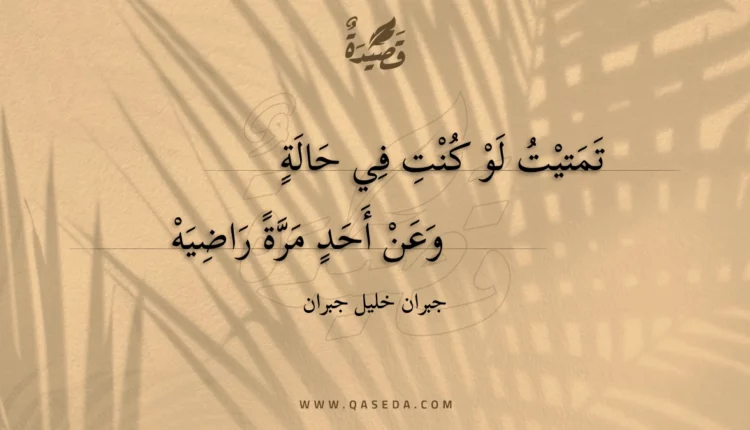 قَصِيْدَةٌ
تَمَتيْتُ لَوْ كُنْتِ فِي حَالَةٍ
وَعَنْ أَحَدٍ مَرَّةً رَاضِيَهْ
جبران خليل جبران
WWW.QASEDA.COM